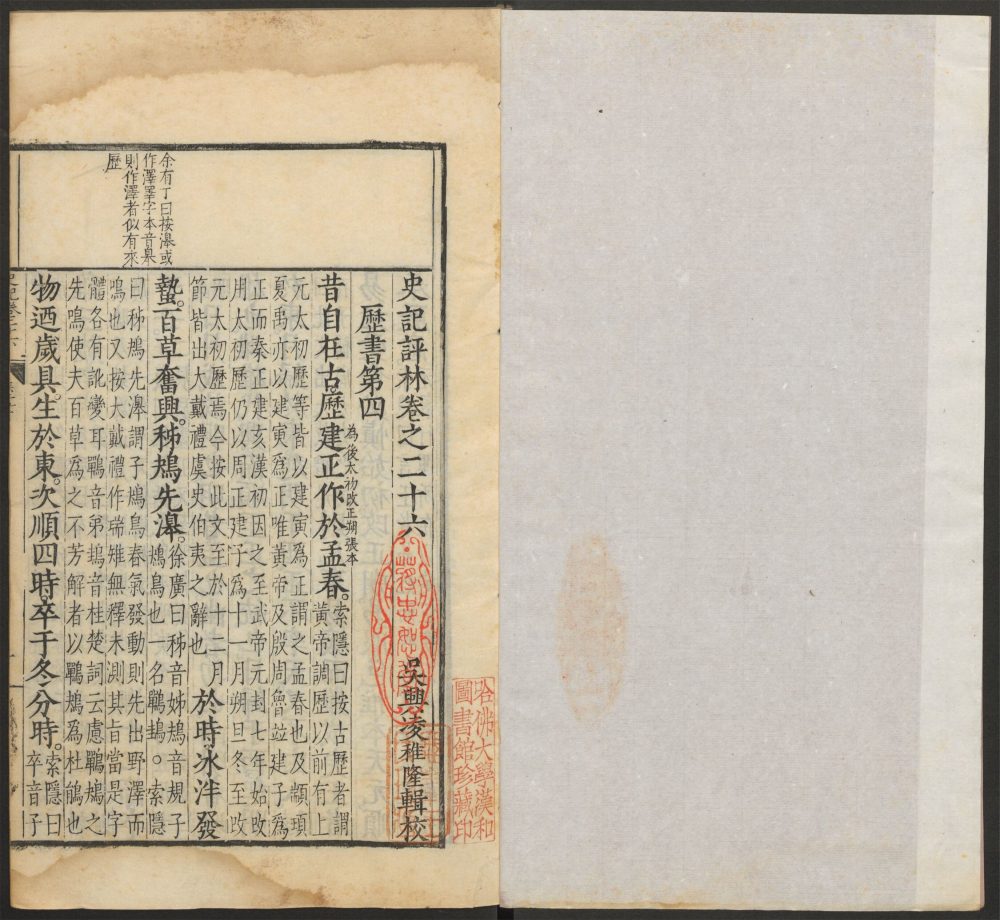 余有丁曰按滜或
作澤睪字本音臯
則作澤者似有來
歷
史記評林卷之二十六
吳興凌稚隆輯校
歷書第四
昔自在古歷建正作於孟春。
為後太初改正朔張本
索隱曰按古歷者謂
黃帝調歷以前有上
元太初歷等皆以建寅為正謂之孟春也及顓頊
夏禹亦以建寅爲正唯黃帝及殷周魯並建子為
正而秦正建亥漢初因之至武帝元封七年始改
用太初歷仍以周正建子爲十一月朔旦冬至改
元太初歷焉今按此文至於十二月
節皆出大戴禮虞史伯夷之辭也
於時冰泮發
蟄。百草奮興。秭鳺先滜。
徐廣曰秭音姊鳺音規子
鳺鳥也一名鷤鴂。索隱
曰秭鳺先滜謂子鳺鳥春氣發動則先出野澤而
鳴也又按大戴禮作瑞雉無釋未測其旨當是字
體各有訛變耳鷤音弟鴂音桂楚詞云慮鷤鴂之
先鳴使夫百草爲之不芳解者以鷤鴂爲杜鵑也
物迺歲具。生於東。次順四時。卒于冬分時。
索隱曰
卒音子
哈佛大學漢和
圖書館珍藏印